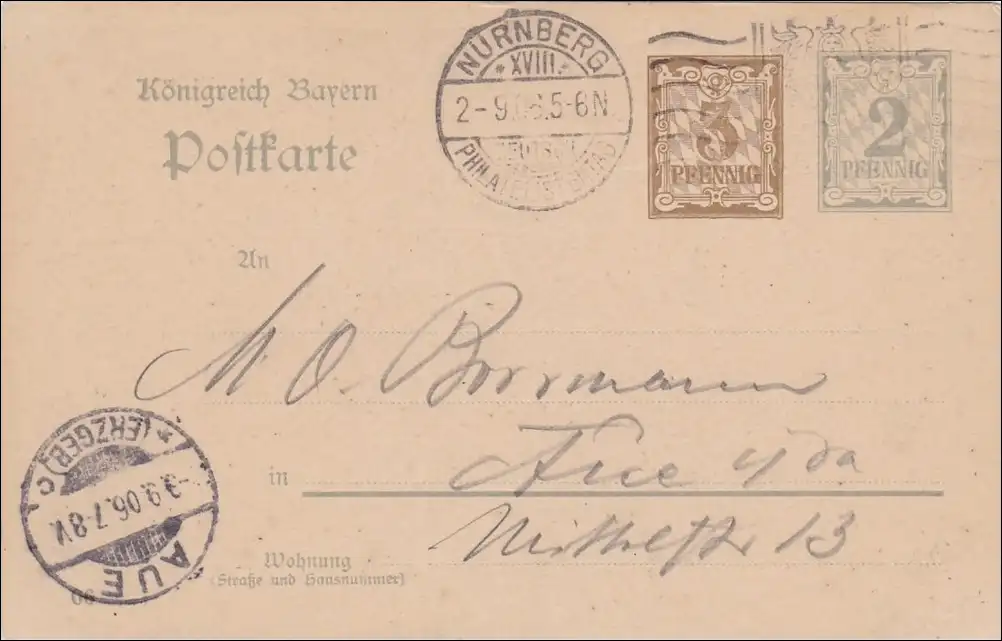 NÜRNBERG
* XVIII. *
2-9.06.5-6N
PHILATELISTENTAG
3
PFENNIG
2
PFENNIG
Königreich Bayern
Postkarte
An
M O. Borrmann
in Aue
13
Wohnung
(Straße und Hausnummer)
* (ERZGEB.) c
-3.9.06.7-8V.
AUE
06